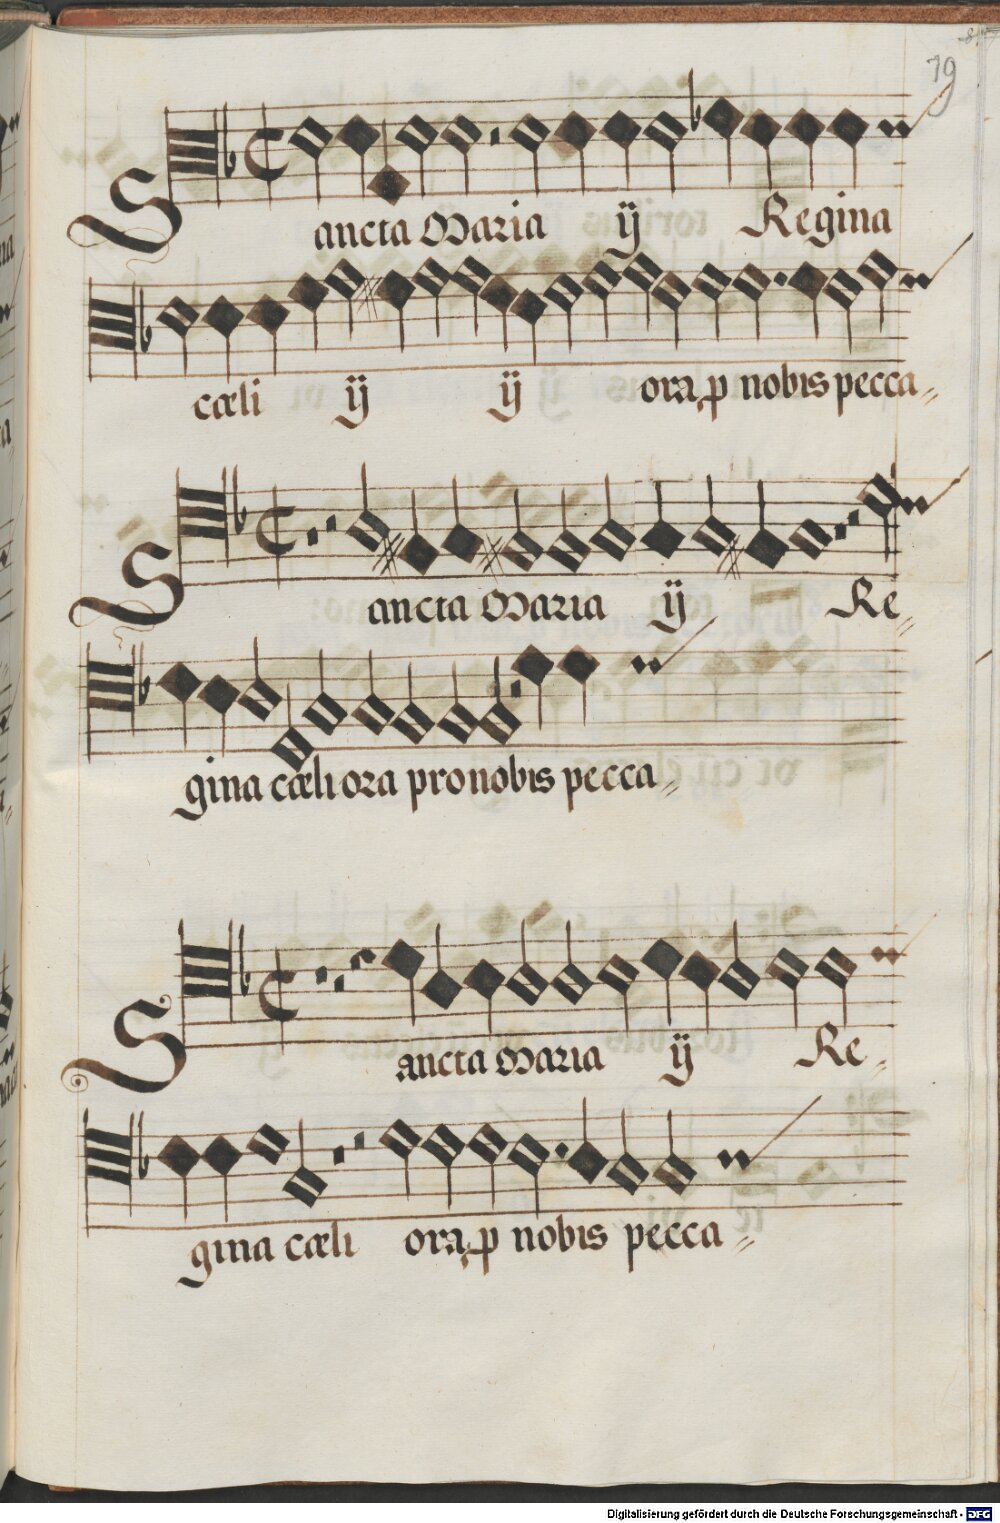 79
Sancta Maria ij Regina
cæli ij ij ora p nobis pecca〃
Sancta Maria ij Re〃
gina cæli ora pro nobis pecca〃
Sancta Maria ij Re〃
gina cæli ora p nobis pecca〃
Digitalisierung gefördert durch die Deutsche Forschungsgemeinschaft - DFG